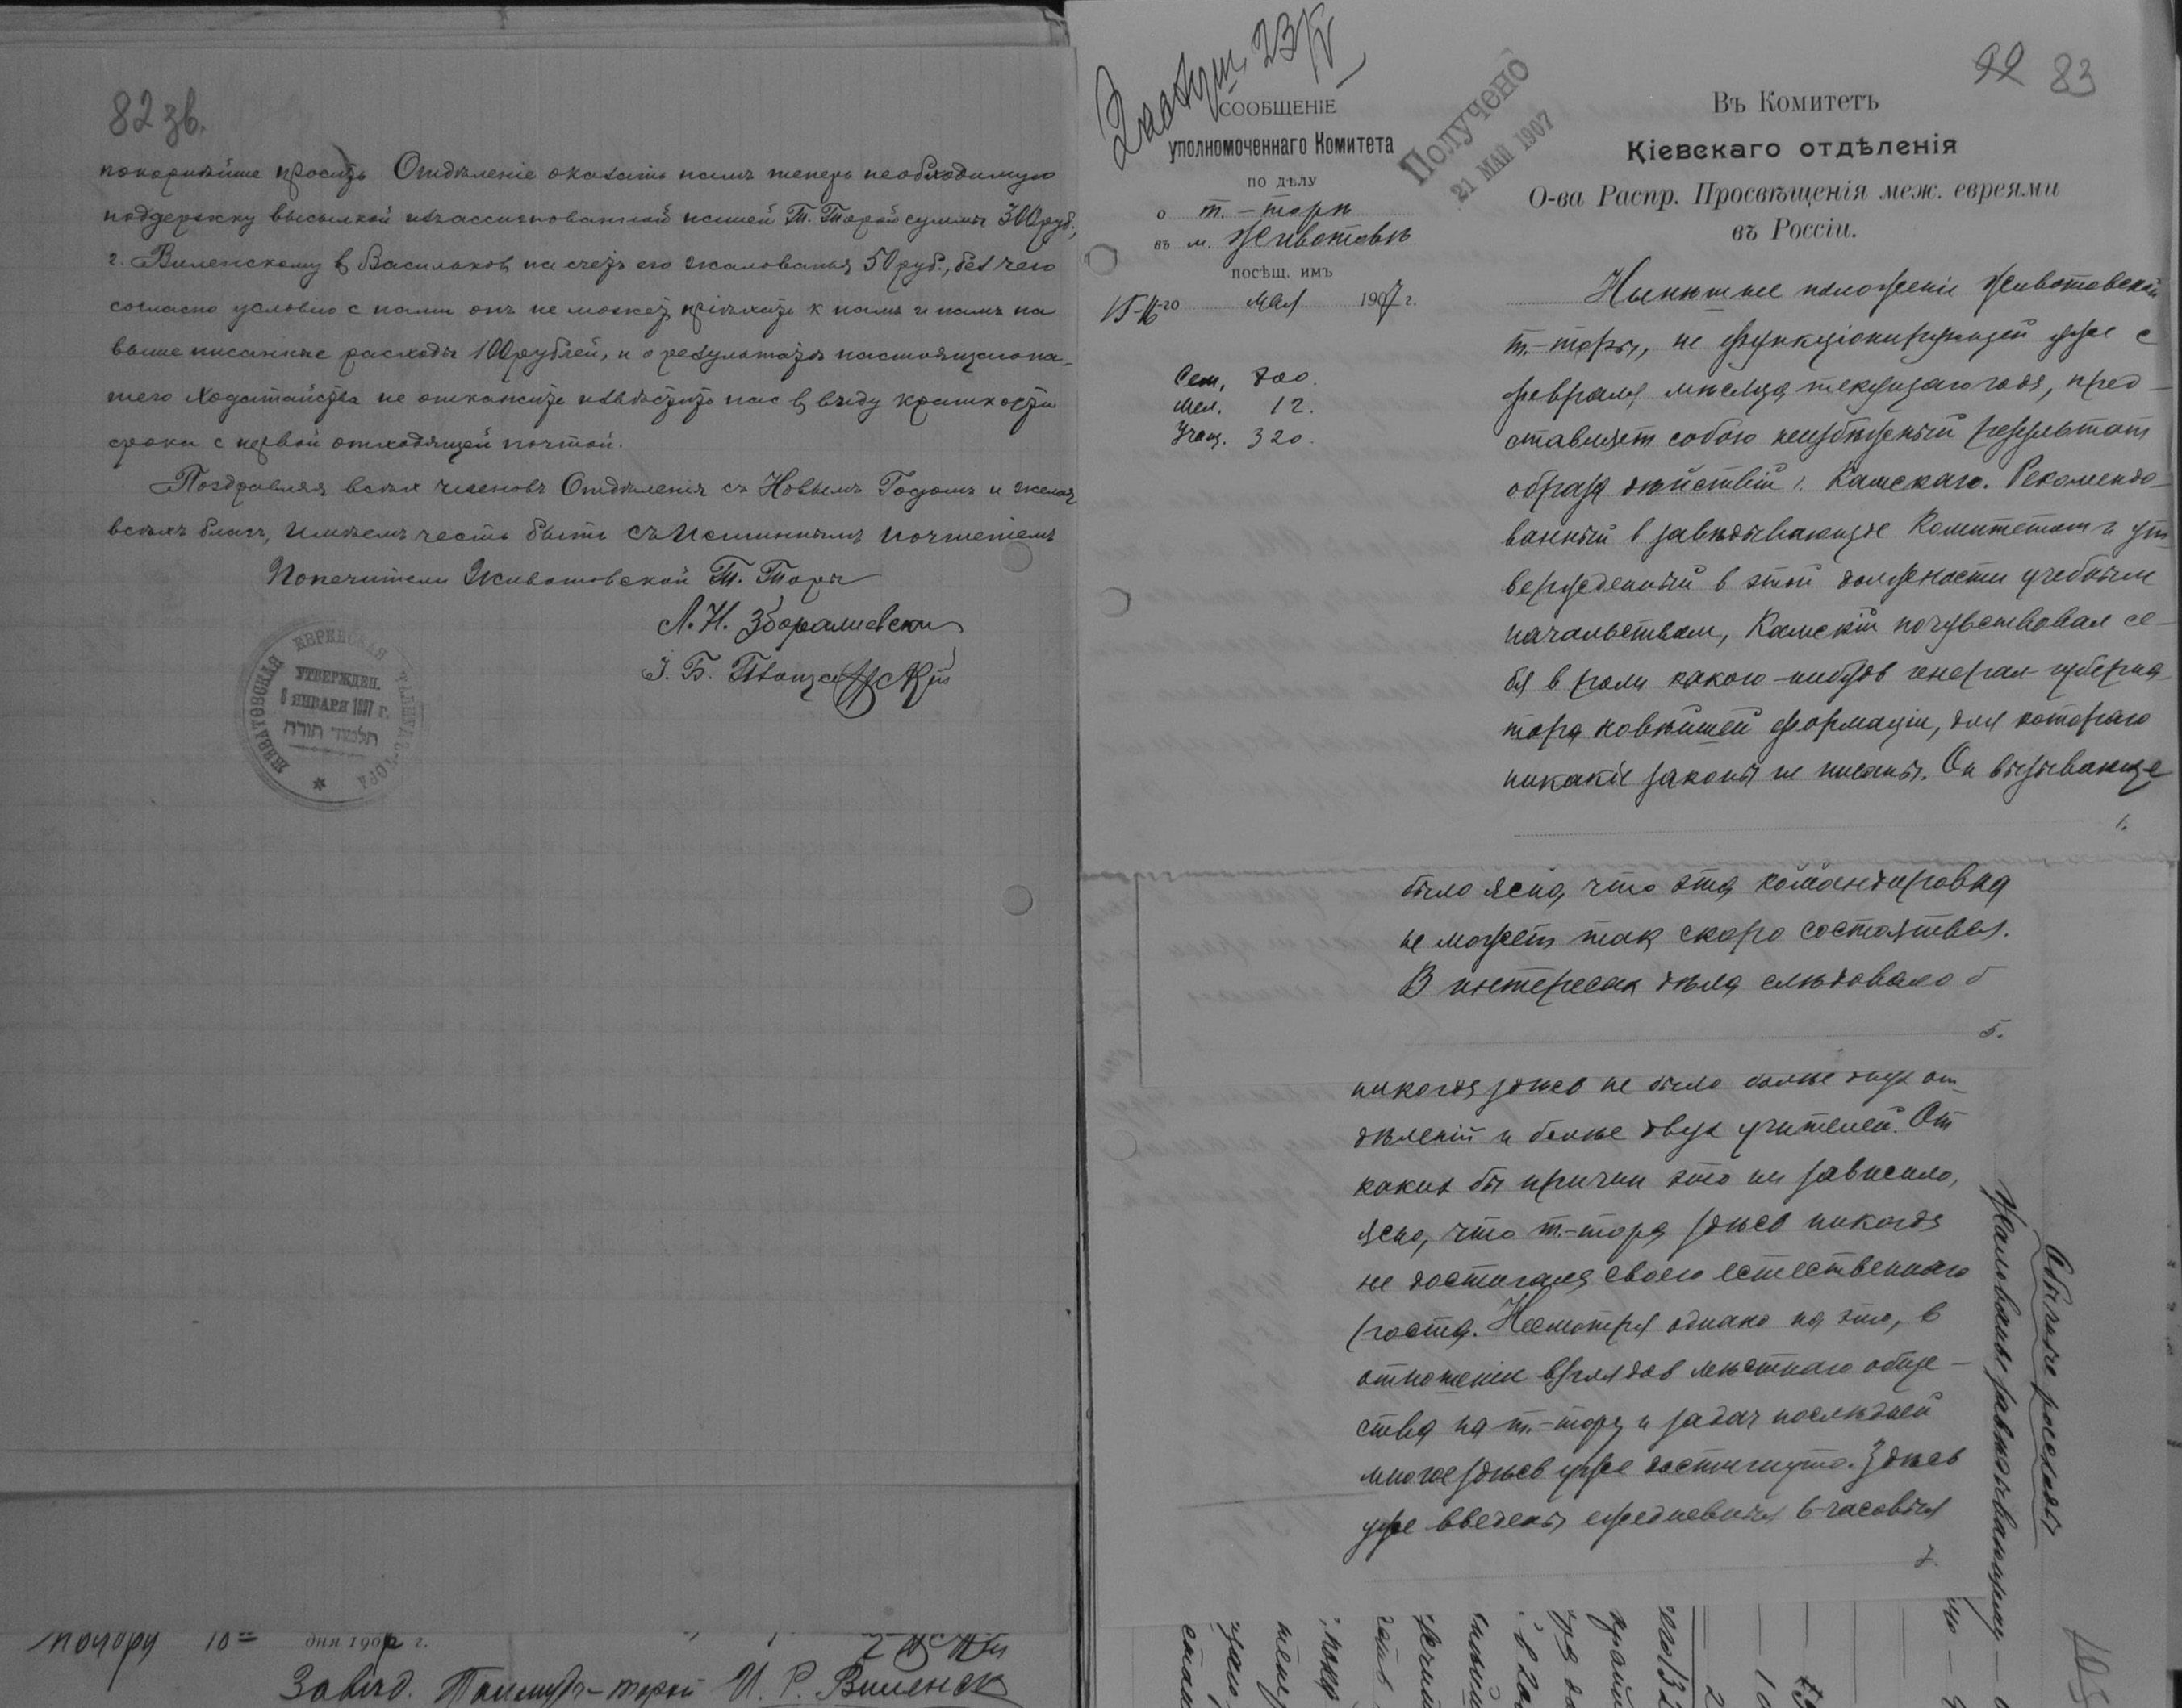 82 зв.
покорнѣйше просить Отдѣленіе оказать намъ теперь необходимую
поддержку высылкой изъ ассигнованной нашей Т. Торой суммы 300 руб.,
г. Виленскому в Васильков на счетъ его жалованья 50 руб., без чего
согласно условію с нами онъ не можетъ пріѣхать к намъ и намъ на
выше писанные расходы 100 рублей, и о результатѣ настоящаго на-
шего ходатайства не откажите извѣстить нас в виду краткости
срока с первой отходящей почтой.
Поздравляя всѣх членовъ Отдѣленія съ Новымъ Годомъ и желая
всѣхъ благъ, имѣемъ честь быть съ истиннымъ почтеніемъ
Попечители Животовской Т. Торы
Л. Н. Зборашевски
З. Б.
ЖИВАТОВСКАЯ ЕВРЕЙСКАЯ ТАЛМУДЪ-ТОРА
УТВЕРЖДЕН.
8 ЯНВАРЯ 1897 г.
תלמוד תורה
10 дня 190 г.
Завѣд. Талмудъ-торой И. Р. Виленск
23/V
СООБЩЕНІЕ
уполномоченнаго Комитета
по дѣлу
о т.-торѣ
въ м. Животовкѣ
посѣщ. имъ
15-16го мая 1907 г.
Сем. 800.
Мел. 12.
Учащ. 320.
Получено
21 МАЙ 1907
83
Въ Комитетъ
Кіевскаго отдѣленія
О-ва Распр. Просвѣщенія меж. евреями
въ Россіи.
Нынѣшнее положеніе Животовской
т.-торы, не функціонирующей уже с
февраля мѣсяца текущаго года, пред-
ставляет собою неизбѣжный результат
образа дѣйствій г. Камскаго. Рекомендо-
ванный в завѣдывающіе Комитетом и ут-
вержденный в этой должности учебным
начальством, Камскій почувствовал се-
бя в роли какого-нибудь генерал-губерна-
тора новѣйшей формаціи, для котораго
никакіе законы не писаны. Он вызывающе
1.
было ясно, что эта командировка
не может так скоро состояться.
В интересах дѣла слѣдовало б
5.
никогда здѣсь не было болѣе двух от-
дѣленій и болѣе двух учителей. От
каких бы причин это ни зависило,
ясно, что т.-тора здѣсь никогда
не достигала своего естественнаго
роста. Несмотря однако на это, в
отношеніи взглядов мѣстнаго обще-
ства на т.-тору и задач послѣдней
многое здѣсь уже достигнуто. Здѣсь
уже введены ежедневныя 6-часовыя
7.
Обычные расходы
Жалованье завѣдывающему —